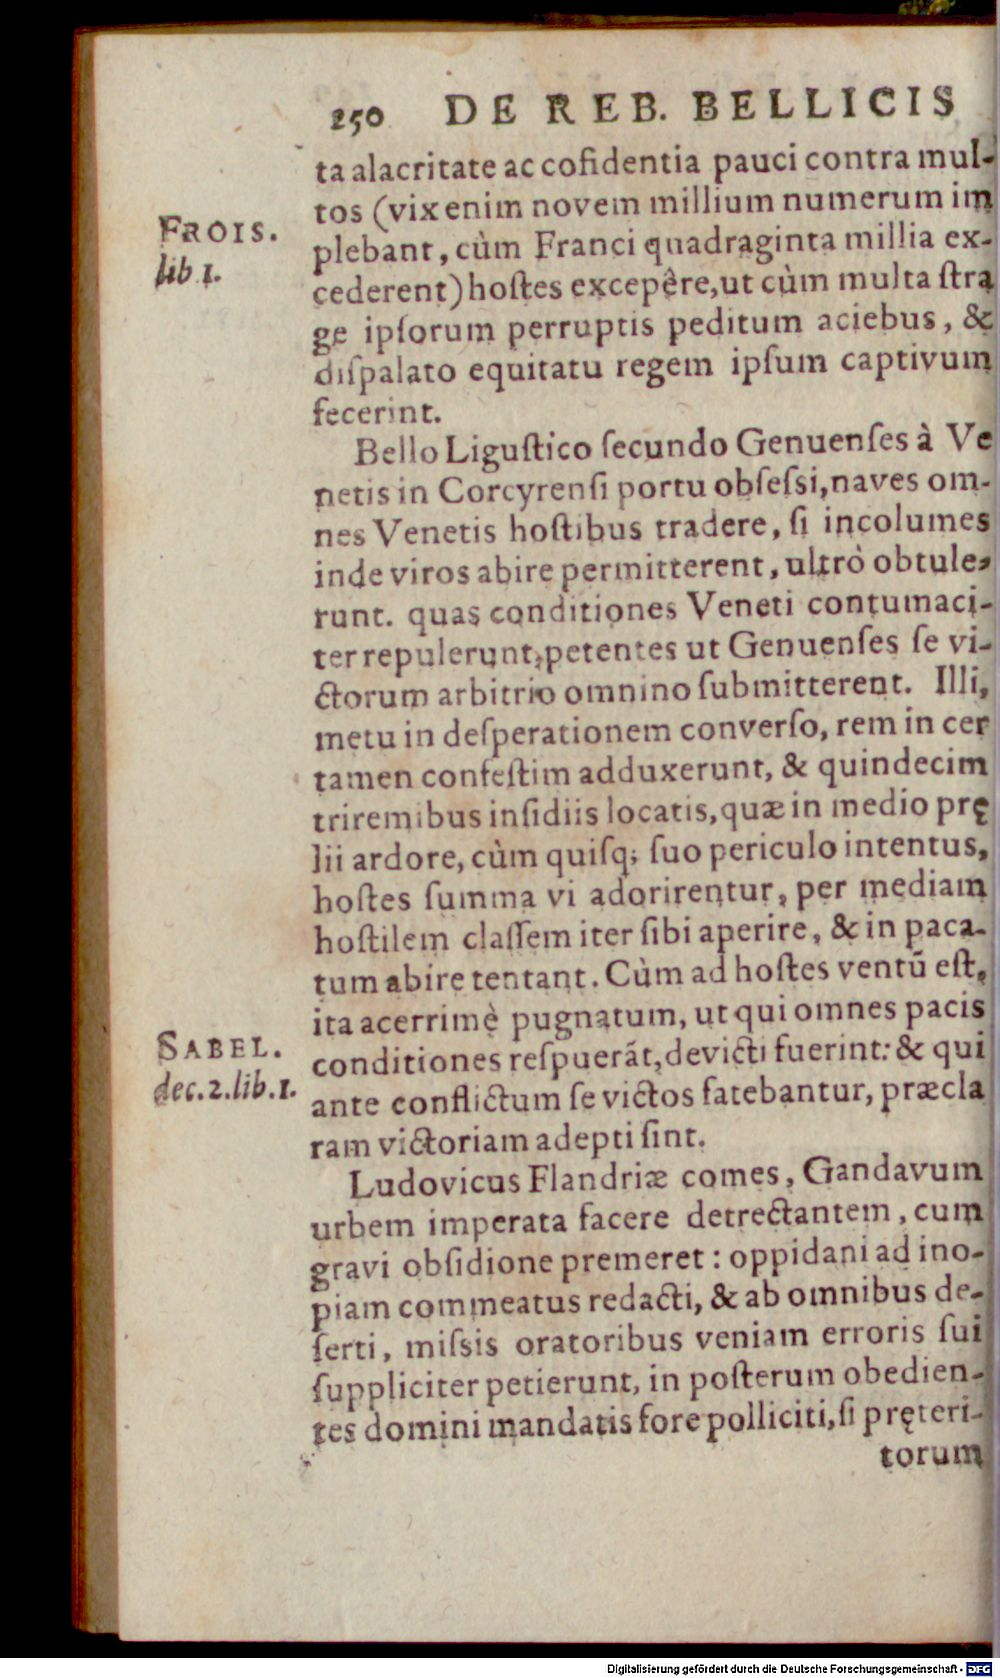 250 DE REB. BELLICIS
ta alacritate ac cofidentia pauci contra mul-
tos (vix enim novem millium numerum im
FROIS.
lib 1.
plebant, cùm Franci quadraginta millia ex-
cederent) hoſtes excepêre, ut cùm multa ſtra
ge ipſorum perruptis peditum aciebus, &
diſpalato equitatu regem ipſum captivum
fecerint.
Bello Liguſtico ſecundo Genuenſes à Ve
netis in Corcyrenſi portu obſeſsi, naves om-
nes Venetis hoſtibus tradere, ſi incolumes
inde viros abire permitterent, ultrò obtule-
runt. quas conditiones Veneti contumaci-
ter repulerunt, petentes ut Genuenſes ſe vi-
ctorum arbitrio omnino ſubmitterent. Illi,
metu in deſperationem converſo, rem in cer
tamen confeſtim adduxerunt, & quindecim
triremibus inſidiis locatis, quæ in medio prę
lii ardore, cùm quiſq; ſuo periculo intentus,
hoſtes ſumma vi adorirentur, per mediam
hoſtilem claſſem iter ſibi aperire, & in paca-
tum abire tentant. Cùm ad hoſtes ventū eſt,
ita acerrimè pugnatum, ut qui omnes pacis
SABEL.
dec. 2. lib. 1.
conditiones reſpuerãt, devicti fuerint: & qui
ante conflictum ſe victos fatebantur, præcla
ram victoriam adepti ſint.
Ludovicus Flandriæ comes, Gandavum
urbem imperata facere detrectantem, cum
gravi obſidione premeret: oppidani ad ino-
piam commeatus redacti, & ab omnibus de-
ſerti, miſsis oratoribus veniam erroris ſui
ſuppliciter petierunt, in poſterum obedien-
tes domini mandatis fore polliciti, ſi pręteri-
torum
Digitalisierung gefördert durch die Deutsche Forschungsgemeinschaft - DFG